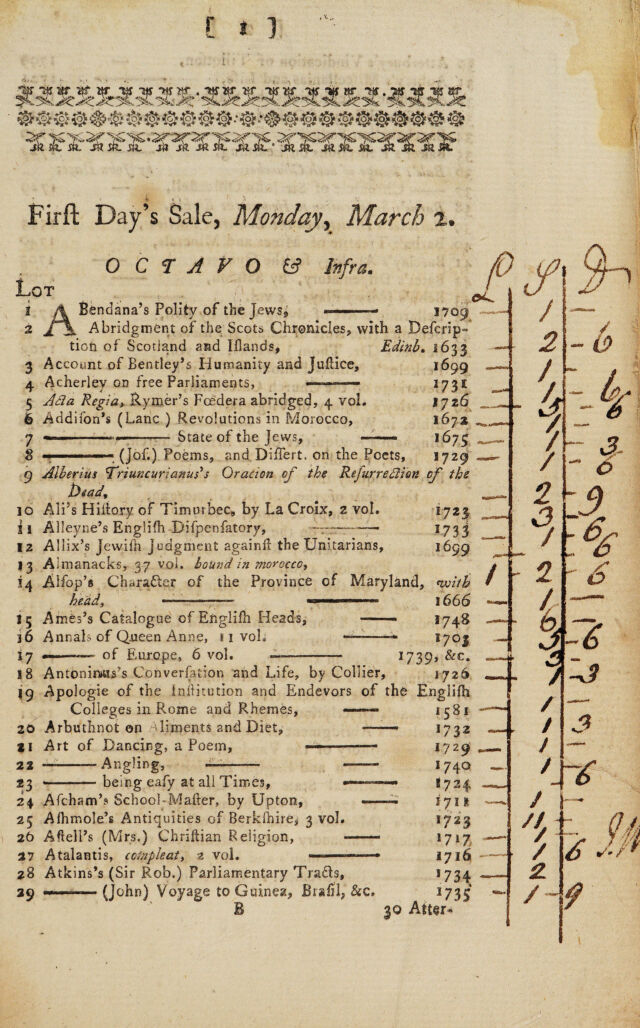 [ 1 ]
Firſt Day's Sale, Monday, March 2.
OCTAVO & Infra.
L S D
Lot
1 ABendana's Polity of the Jews, —— 1709 — 1 —
2 Abridgment of the Scots Chronicles, with a Deſcrip-
tion of Scotland and Iſlands, Edinb. 1633 — 2 - 6
3 Account of Bentley's Humanity and Juſtice, 1699 — 1 —
4 Acherley on free Parliaments, —— 1731 — 1 6
5 Acta Regia, Rymer's Fœdera abridged, 4 vol. 1726 — 3 6
6 Addiſon's (Lanc.) Revolutions in Morocco, 1672 — 1 —
7 —— State of the Jews, —— 1675 — 1 3
8 —— (Joſ.) Poems, and Diſſert. on the Poets, 1729 — 1 6
9 Alberius Triuncurianus's Oration of the Reſurrection of the
Dead, — 2 9
10 Ali's Hiſtory of Timurbec, by La Croix, 2 vol. 1723 — 3
11 Alleyne's Engliſh Diſpenſatory, —— 1733 — 1 6
12 Allix's Jewiſh Judgment againſt the Unitarians, 1699 — 6
13 Almanacks, 37 vol. bound in morocco, 1 2 6
14 Alſop's Character of the Province of Maryland, with
head, —— —— 1666 — 1 —
15 Ames's Catalogue of Engliſh Heads, —— 1748 — 6
16 Annals of Queen Anne, 11 vol. —— 1703 — 3 6
17 —— of Europe, 6 vol. —— 1739, &c. — 3
18 Antoninus's Converſation and Life, by Collier, 1726 — 1 3
19 Apologie of the Inſtitution and Endevors of the Engliſh
Colleges in Rome and Rhemes, —— 1581 — 1
20 Arbuthnot on Aliments and Diet, —— 1732 — 1 3
21 Art of Dancing, a Poem, —— 1729 — 1
22 —— Angling, —— —— 1740 — 1
23 —— being eaſy at all Times, —— 1724 — 6
24 Aſcham's School-Maſter, by Upton, —— 1711 — 1
25 Aſhmole's Antiquities of Berkſhire, 3 vol. 1723 — 11
26 Aſtell's (Mrs.) Chriſtian Religion, —— 1717 — 1
27 Atalantis, compleat, 2 vol. —— 1716 — 1 6
28 Atkins's (Sir Rob.) Parliamentary Tracts, 1734 — 2
29 —— (John) Voyage to Guinea, Braſil, &c. 1735 — 1 - 9
B 30 Atter-